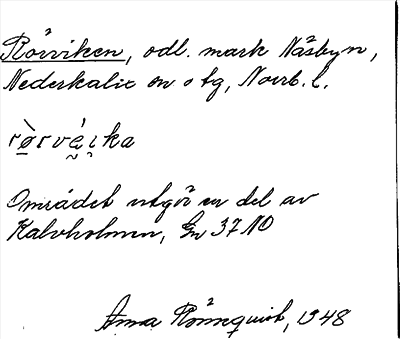 Rörviken, odl. mark Näsbyn,
Nederkalix sn o tg, Norrb. l.
rö̀rvä́i̯ka
Området utgör en del av
Kalvholmen, Gn 37 NO
Anna Rönnquist, 1948